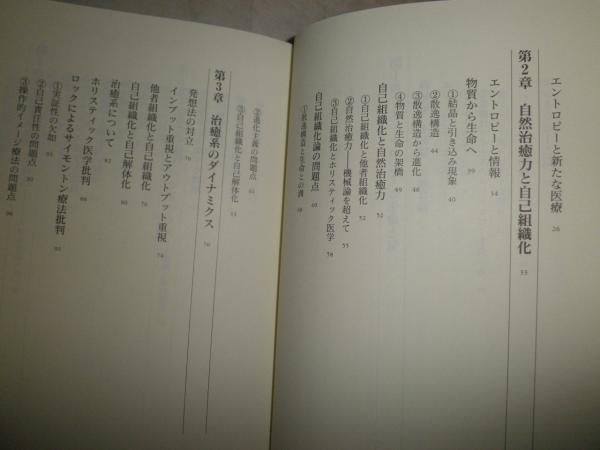 エントロピーと新たな医療 26
第2章 自然治癒力と自己組織化 33
エントロピーと情報 34
物質から生命へ 39
①結晶と引き込み現象 40
②散逸構造 44
③散逸構造から進化 46
④物質と生命の架橋 49
自己組織化と自然治癒力 52
①自己組織化と他者組織化 52
②自然治癒力——機械論を超えて 55
③自己組織化とホリスティック医学 58
自己組織化論の問題点 60
①散逸構造と生命との溝 60
②進化主義の問題点 65
③自己組織化と自己解体化
第3章 治癒系のダイナミクス 70
発想法の対立 70
インプット重視とアウトプット重視 74
他者組織化と自己組織化 76
自己組織化と自己解体化
治癒系について 82
ホリスティック医学批判 88
ロックによるサイモントン療法批判
①実証性の欠如
②自己責任性の問題点
③操作的イメージ療法の問題点 96